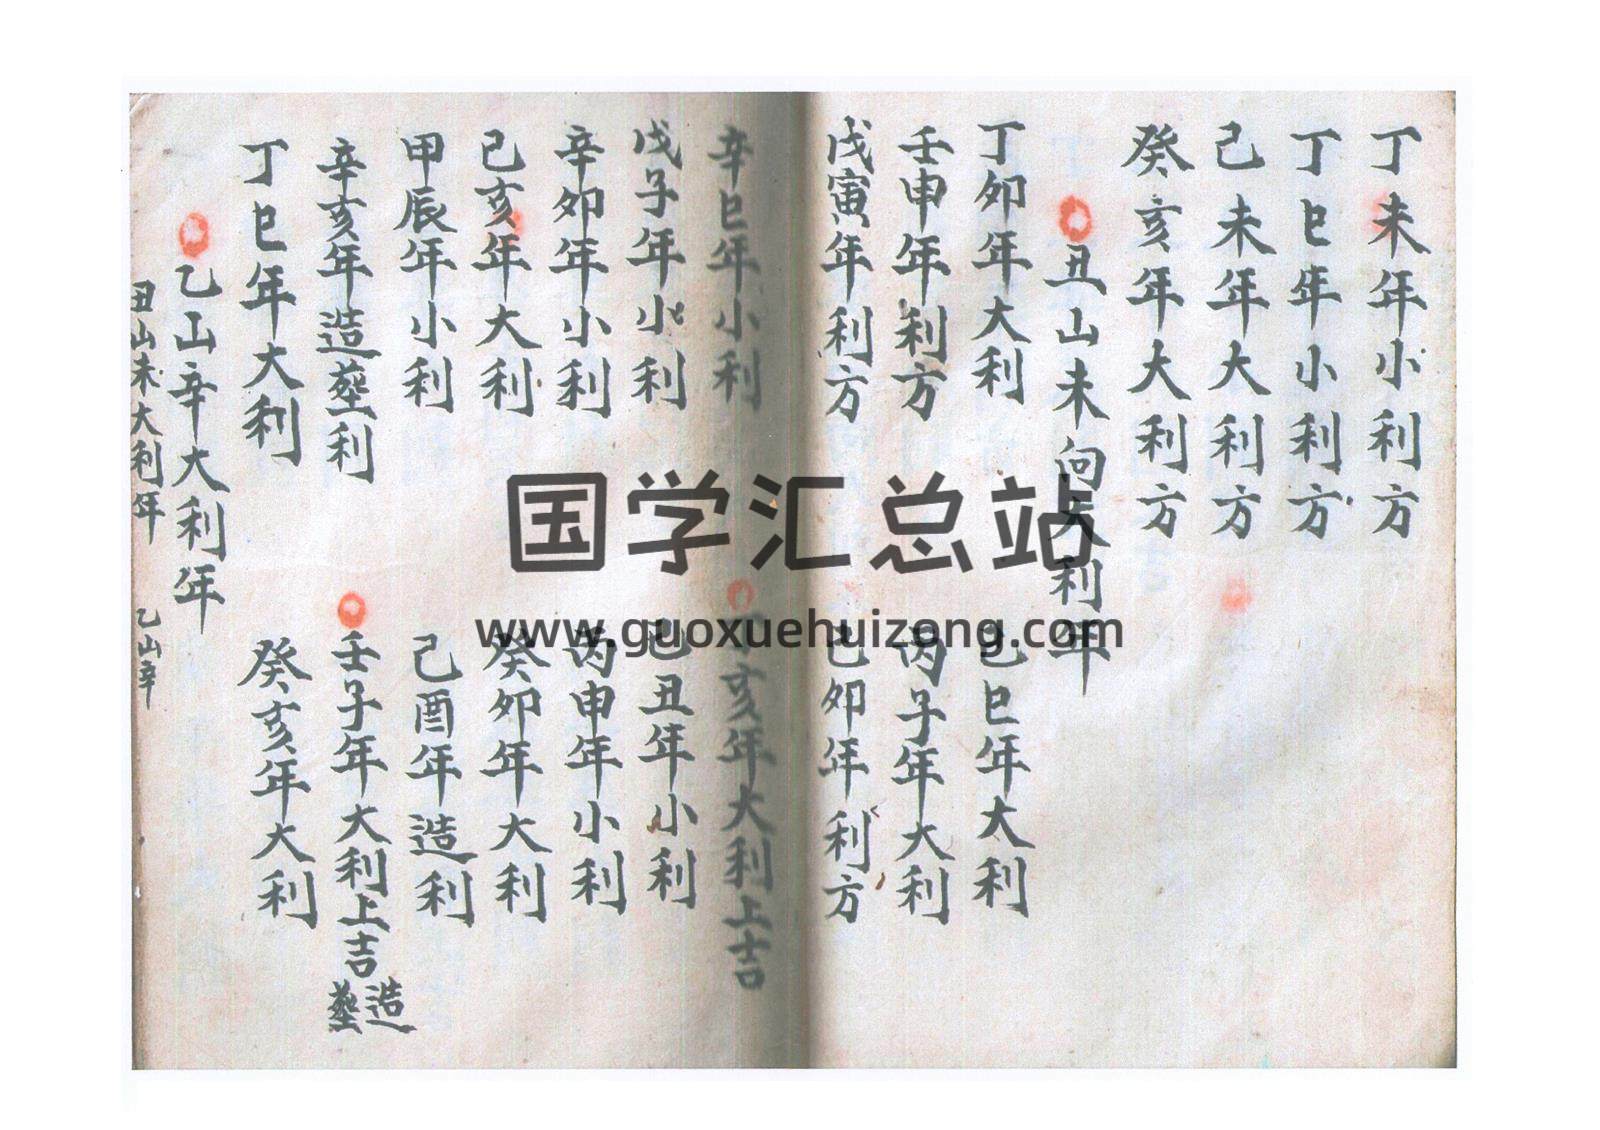 丁未年小利方
丁巳年小利方
己未年大利方
癸亥年大利方
丑山未向大利年
丁卯年大利 己巳年大利
壬申年利方 丙子年大利
戊寅年利方 己卯年利方
辛巳年小利 亥年大利上吉
戊子年小利 己丑年小利
辛卯年小利 丙申年小利
己亥年大利 癸卯年大利
甲辰年小利 己酉年造利
辛亥年造塟利 壬子年大利上吉造塟
丁巳年大利 癸亥年大利
乙山辛大利年
丑山未大利年 乙山辛
国学汇总站
www.guoxuehuizong.com